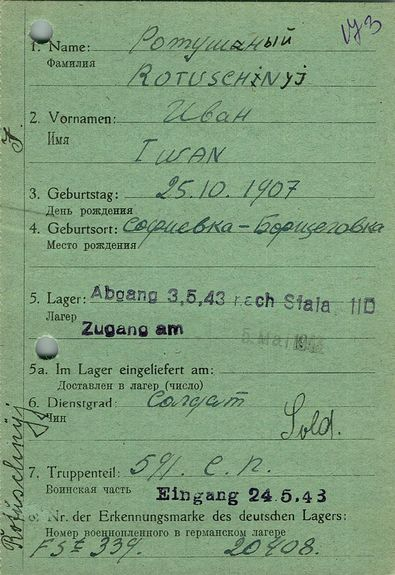 1. Name: Ротушаный
Фамилия
ROTUSCHINYJ
2. Vornamen: Иван
Имя
IWAN
3. Geburtstag: 25.10.1907
День рождения
4. Geburtsort: Софиевка-Борщеговка
Место рождения
5. Lager: Abgang 3,5.43 nach Stala IID
Лагер
Zugang am 5. Mai
5a. Im Lager eingeliefert am:
Доставлен в лагер (число)
6. Dienstgrad: Солдат
Чин
Sold.
7. Truppenteil: 591. с.п.
Воинская часть Eingang 24.5.43
Nr. der Erkennungsmarke des deutschen Lagers:
Номер военнопленного в германском лагере
339. 20408.
Rotuschinyj